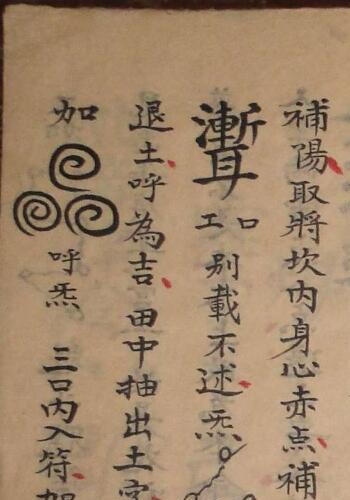 補陽取將坎內身心赤点補
口工別載不述炁
退土呼為吉田中抽出土字
加呼炁三口內入符